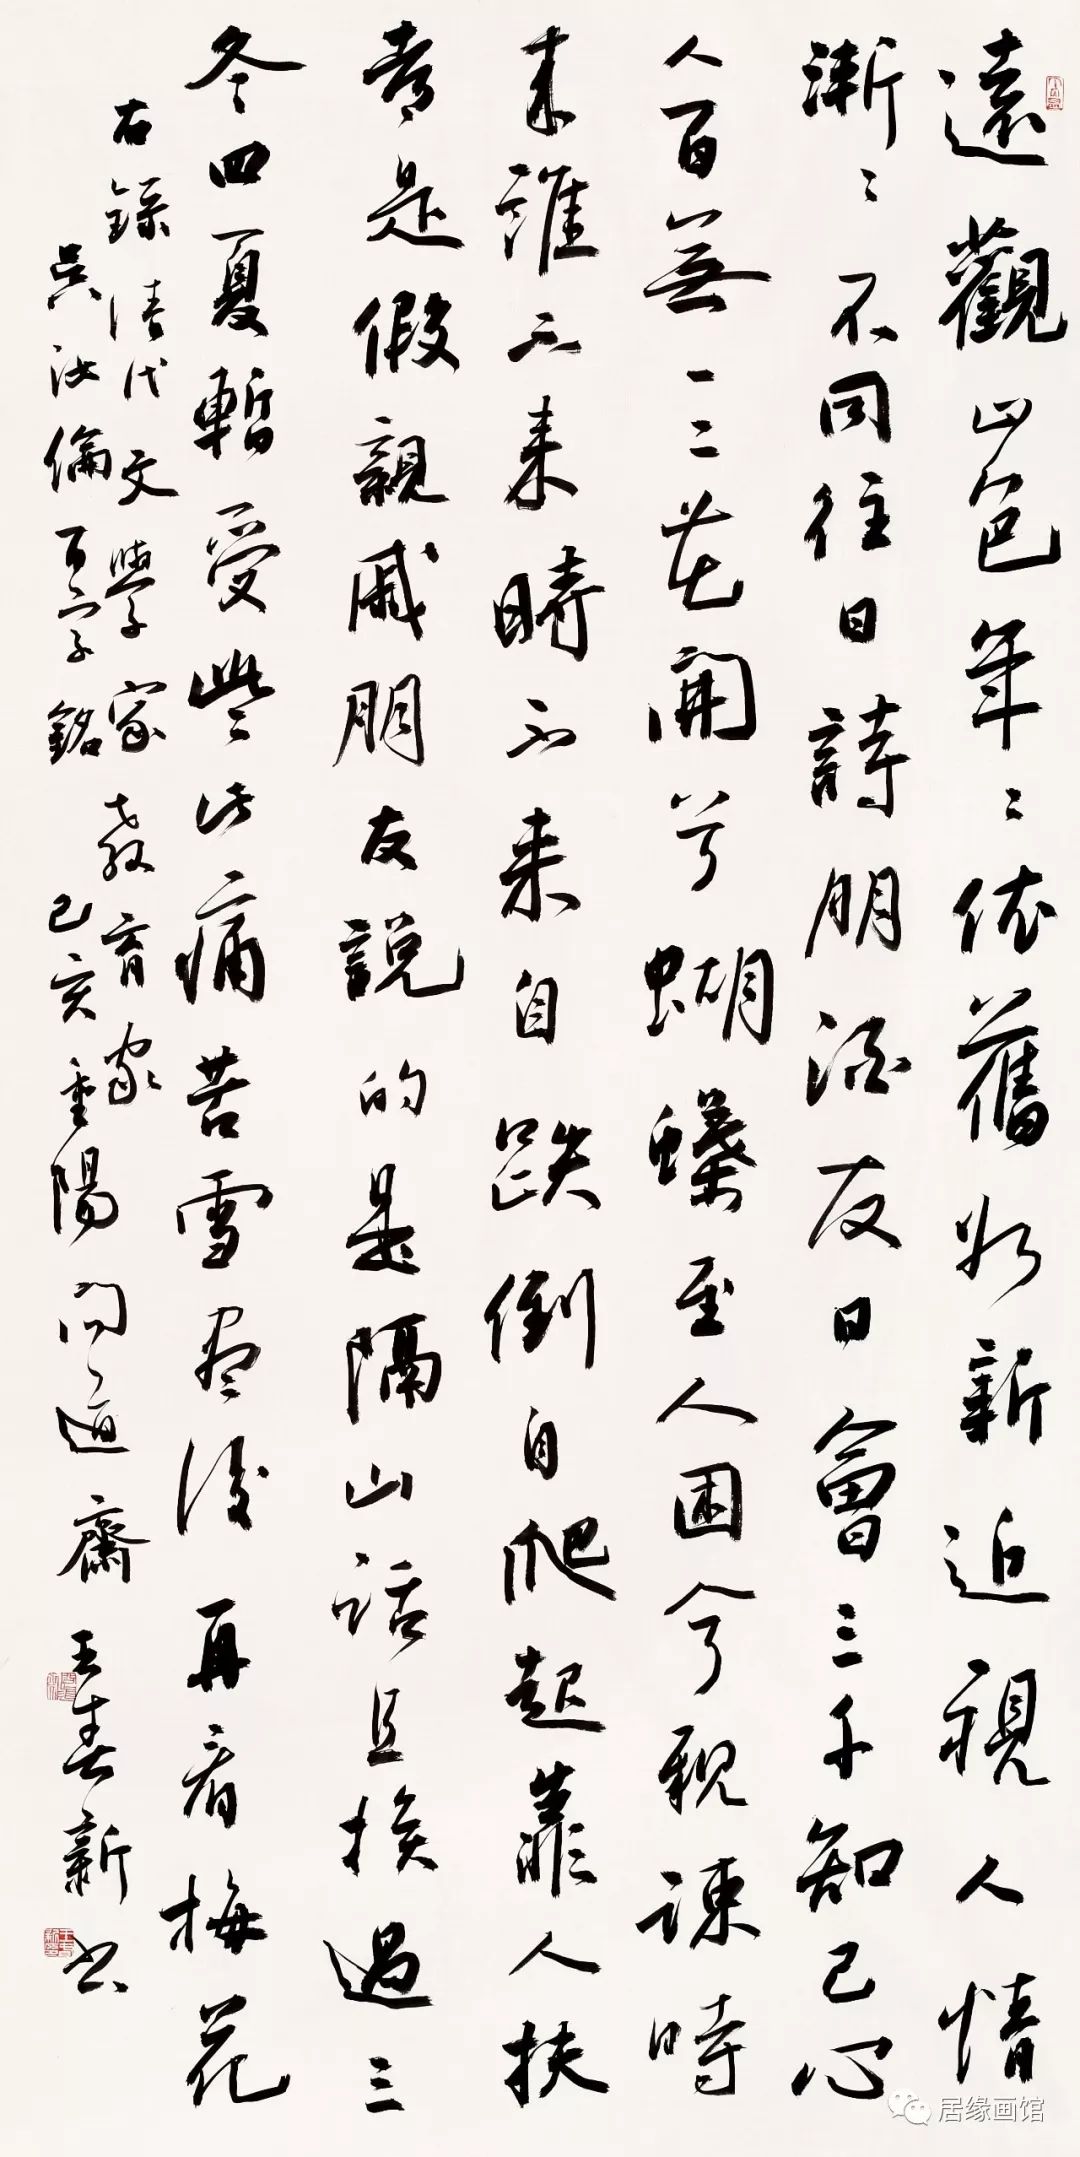 遠觀山色年〻依舊如新近視人情
漸〻不同往日詩朋酒友日會三千知己心
人百無一二花開兮蝴蝶至人困兮親疎時
来誰不来時不来自跌倒自爬起靠人扶
者是假親戚朋友説的是隔山話且挨過三
冬四夏暫受些此痛苦雪盡後再看梅花
右錄清代文學家教育家
吳汝倫百字銘己亥重陽問道齋王春新書
居缘画馆